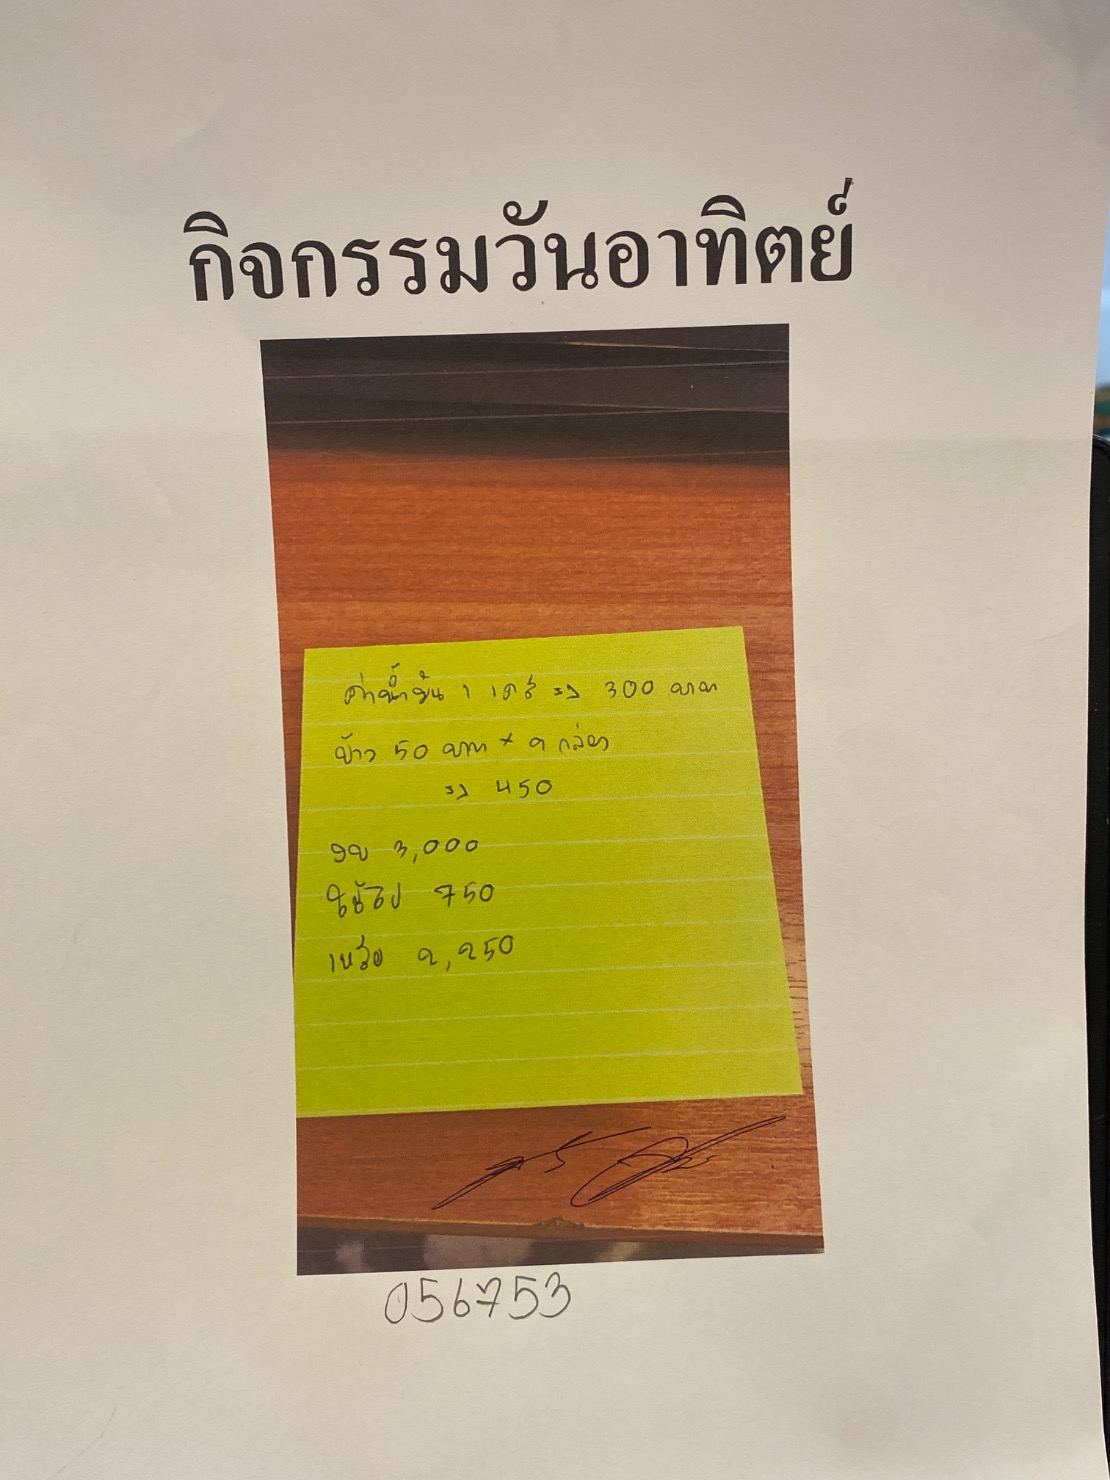 กิจกรรมวันอาทิตย์
ค่าน้ำมัน 1 เที่ยว รวม 300 บาท
ข้าว 50 บาท × 9 กล่อง
รวม 450
งบ 3,000
ใช้ไป 750
เหลือ 2,250
056753